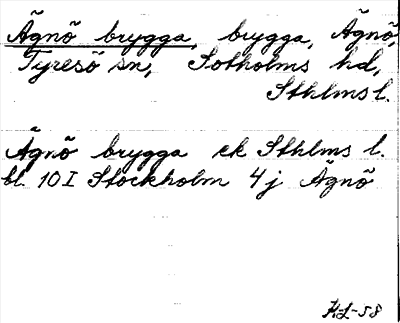 Ägnö brygga, brygga, Ägnö,
Tyresö sn, Sotholms hd,
Sthlms l.
Ägnö brygga ek Sthlms l.
bl. 10 I Stockholm 4j Ägnö
HL-58